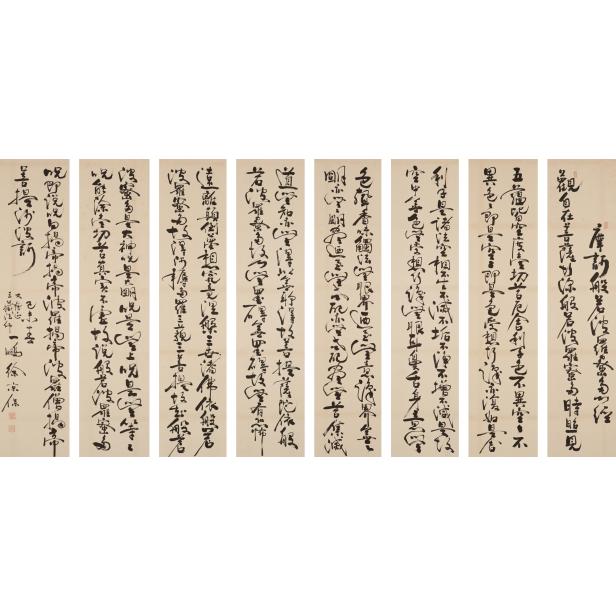 摩訶般若波羅蜜多心經
觀自在菩薩行深般若波羅蜜多時照見
五蘊皆空度一切苦厄舍利子色不異空〻不
異色〻即是空〻即是色受想行識亦復如是舍
利子是諸法空相不生不滅不垢不淨不增不減是故
空中無色無受想行識無眼耳鼻舌身意無
色聲香味觸法無眼界乃至無意識界無〻
明亦無〻明盡乃至無老死亦無老死盡無苦集滅
道無智亦無得以無所得故菩提薩埵依般
若波羅蜜多故心無罣礙無罣礙故無有恐怖
遠離顛倒夢想究竟涅槃三世諸佛依般若
波羅蜜多故得阿耨多羅三藐三菩提故知般若
波羅蜜多是大神呪是大明呪是無上呪是無等〻
呪能除一切苦真實不虛故說般若波羅蜜多
呪即說呪曰揭帝揭帝波羅揭帝波羅僧揭帝
菩提娑婆訶
己未
一鵬 徐宗